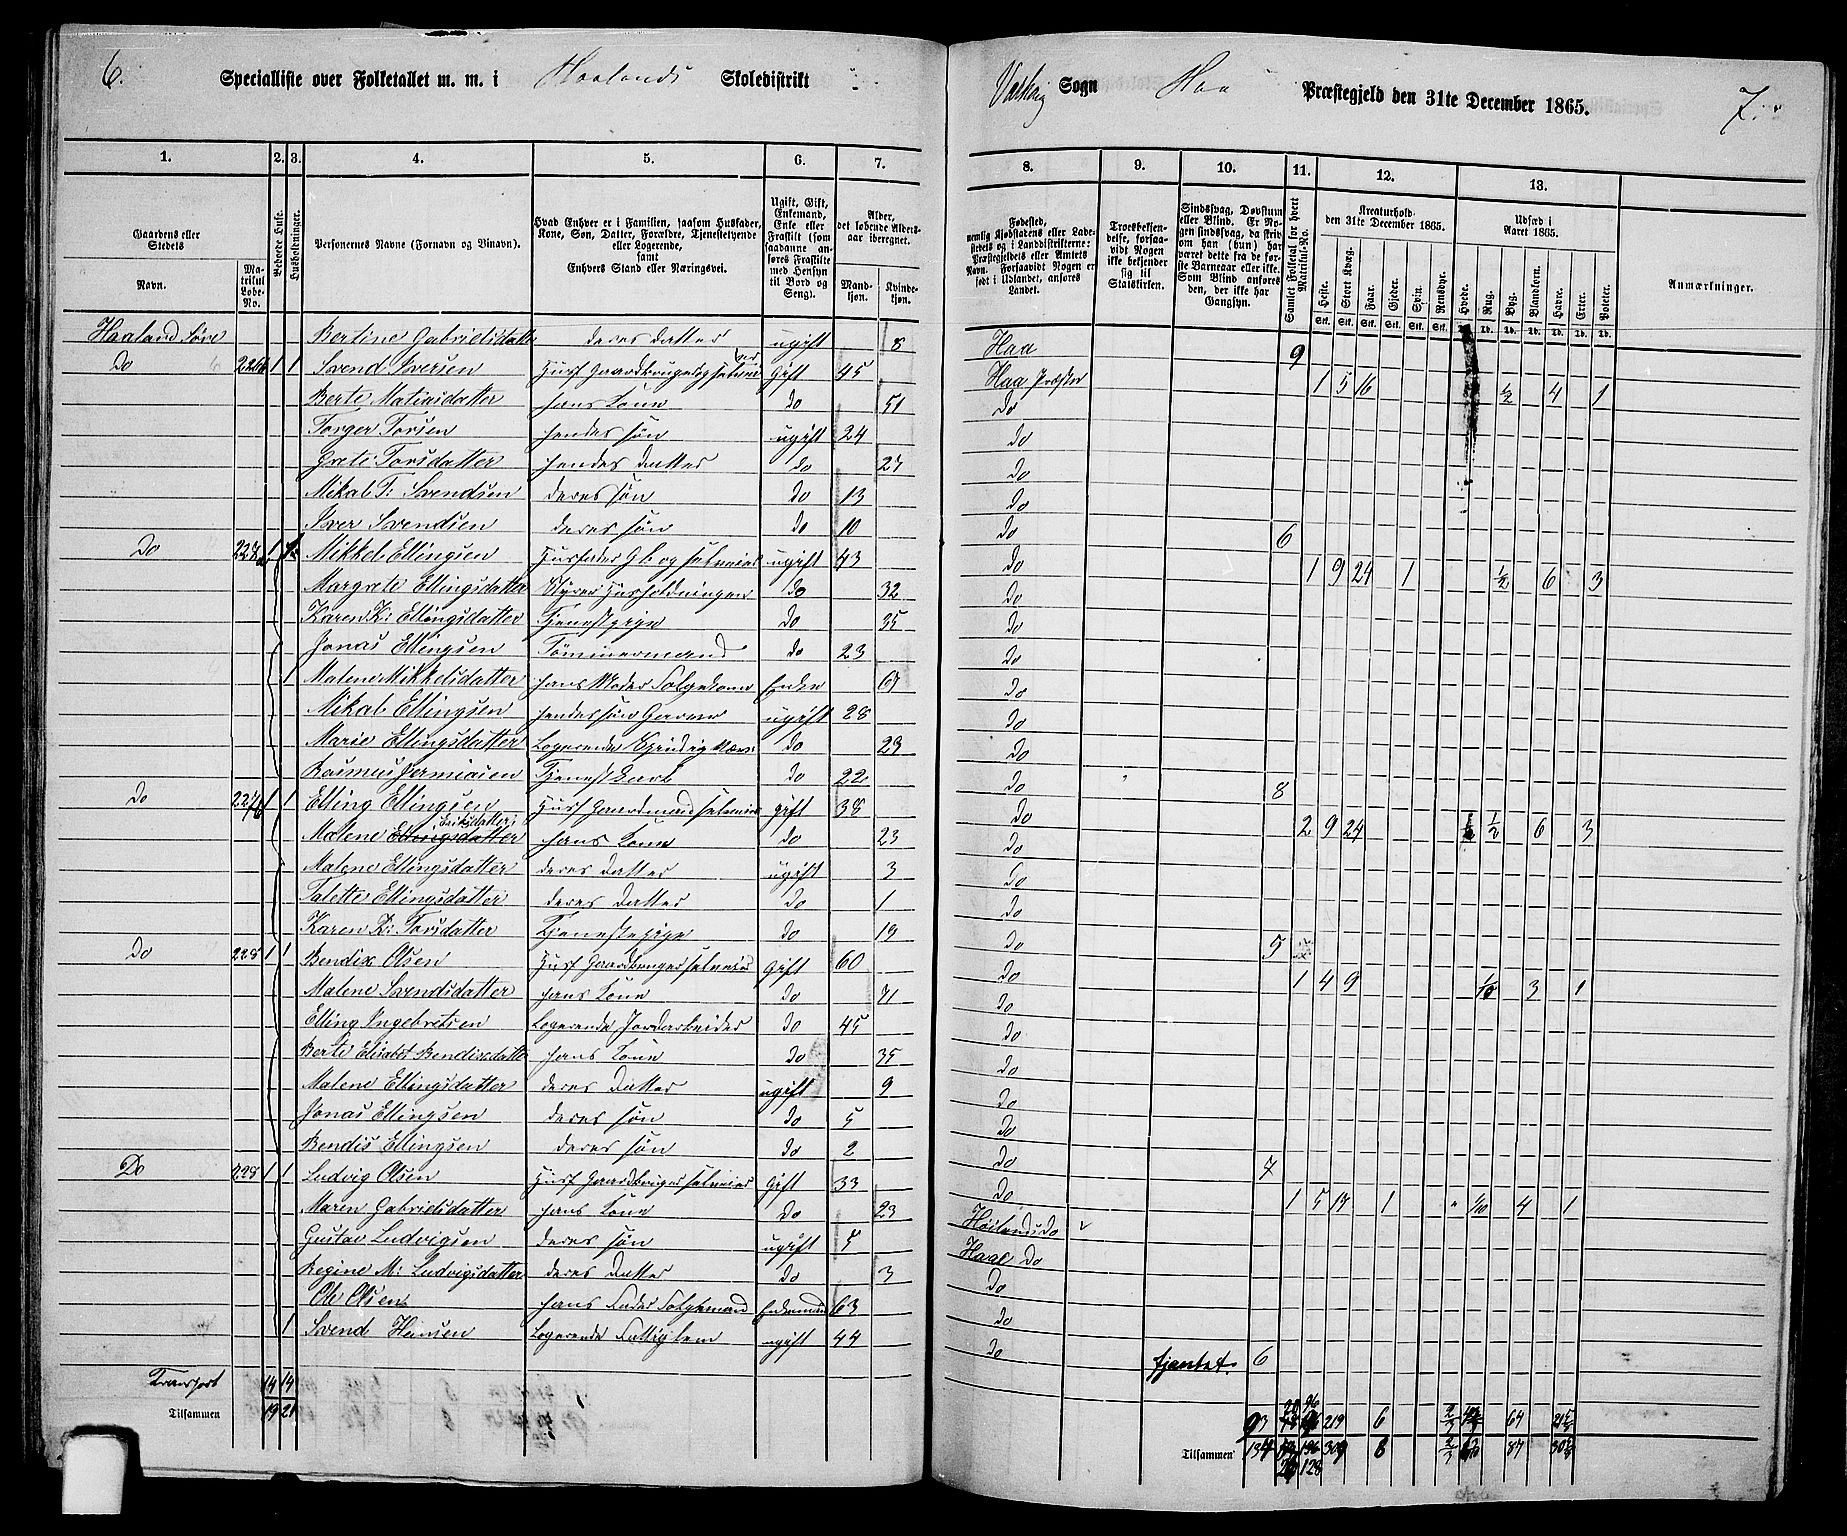 6.
Specialliste over Folketallet m. m. i Haalands Skoledistrikt
Varhaug Sogn Haa Præstegjeld den 31te December 1865.
7.
1. 2. 3. 4. 5. 6. 7. 8. 9. 10. 11. 12. 13.
Gaardens eller Stedets
Navn.
Matrikul Løbe-No.
Beboede Huse.
Husholdninger.
Personernes Navne (Fornavn og Tilnavn).
Hvad Enhver er i Familien, saasom Husfader, Kone, Søn, Datter, Forældre, Tjenestetyende eller Logerende,
samt
Enhvers Stand eller Næringsvei.
Ugift, Gift, Enkemand, Enke eller Fraskilt (som saadanne anføres Fraskilte med Hensyn til Bord og Seng).
Alder, det løbende Aldersaar iberegnet.
Mandkjøn.
Kvindekjøn.
Fødested,
nemlig Kjøbstadens eller Ladestedets og i Landdistrikterne: Præstegjeldets eller Amtets Navn. Forsaavidt Nogen er født i Udlandet, anføres Landet.
Troesbekjendelse, forsaavidt Nogen ikke bekjender sig til Statskirken.
Sindssvag, Døvstum eller Blind. Er Nogen sindssvag, da skrives om han (hun) har været dette fra de første Barneaar eller ikke. Som Blind ansees den, der ikke har Gangsyn.
Samlet Folketal for hvert Matrikul-No.
Kreaturhold
den 31te December 1865.
Heste. Stort Kvæg. Faar. Gjeder. Svin. Rensdyr.
Udsæd i
Aaret 1865.
Hvede. Rug. Byg. Blandkorn. Havre. Erter. Poteter.
Anmærkninger.
Haaland Søre Bertine Gabrielsdatter deres Datter ugift 8 Haa 9
Do 226 1 1 Svend Iversen Husf Gaardbruger og Selveier Gift 45 Haa Præstgj 1 5 16 1/2 4 1
Berte Matiasdatter hans Kone Do 51 Do
Torger Torsen hendes søn ugift 24 Do
Grete Torsdatter hendes datter Do 27 Do
Mikal T: Svendsen deres søn Do 13 Do
Iver Svendsen deres søn Do 10 Do 6
Do 227a 1 1 Mikkel Ellingsen Husfader Gb: og selveier ugift 43 Do 1 9 24 1 1/2 6 3
Margrete Ellingsdatter Styrer Husholdningen Do 32 Do
Karen K: Ellingsdatter Tjenestpige Do 35 Do
Jonas Ellingsen Tømmermand Do 23 Do
1 Malene Mikkelsdatter hans Moder Folgekone Enke 67 Do
Mikal Ellingsen hendes søn Garver ugift 28 Do
Marie Ellingsdatter Logerende Do 23 Do
Rasmus Jermiasen Tjenestkarl Do 22 Do 8
Do 227b 1 1 Elling Ellingsen Husf Gaardmand selveier gift 38 Do 2 9 24 1/2 6 3
Eriksdatter
Malene Ellingsdatter hans Kone Do 23 Do
Malene Ellingsdatter deres datter ugift 3 Do
Talette Ellingsdatter deres Datter Do 1 Do
Karen B: Torsdatter Tjenestepige Do 19 Do 5
Do 228 1 1 Bendix Olsen Husf Gaardbruger selveier Gift 60 Do 1 4 9 1/10 3 1
Malene Svendsdatter hans Kone Do 71 Do
Elling Ingebretsen Logerende Jordarbeider Do 45 Do
Berte Elisabet Bendixsdatter hans Kone Do 35 Do
Malene Ellingsdatter deres Datter ugift 9 Do
Jonas Ellingsen deres søn Do 5 Do
Bendis Ellingsen deres søn Do 2 Do 7
Do 228 1 1 Ludvig Olsen Husf Gaardbruger selveier Gift 33 Do 1 5 17 1 1/10 4 1
Maren Gabrielsdatter hans Kone Do 23 Høilands Do
Gustav Ludvigsen deres søn ugift 5 Haae Do
Regine M: Ludvigsdatter deres Datter Do 3 Do
Ole Olsen hans Fader Folgemand Enkemand 63 Do
1 Svend Hansen Logerende Fattiglem ugift 44 Do 6
Transport 14 19 93 219 6 64
Tilsammen 19 21
Tilsammen 134 309 8 87
128